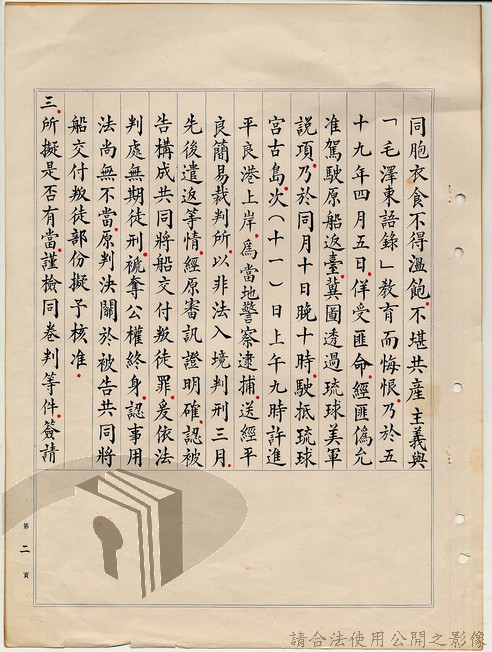 同胞衣食不得溫飽,不堪共產主義與
「毛澤東語錄」教育而悔恨,乃於五
十九年四月五日佯受匪命,經匪偽允
准駕駛原船返臺,冀圖透過琉球美軍
說項,乃於同月十日晚十時,駛抵琉球
宮古島,次(十一)日上午九時許進
平良港上岸,為當地警察逮捕,送經平
良簡易裁判所以非法入境判刑三月,
先後遣返等情,經原審訊證明確,認被
告構成共同將船交付叛徒罪,爰依法
判處無期徒刑,褫奪公權終身,認事用
法尚無不當,原判決關於被告共同將
船交付叛徒部份擬予核准.
三.所擬是否有當,謹檢同卷判等件,簽請
第二頁
請合法使用公開之影像